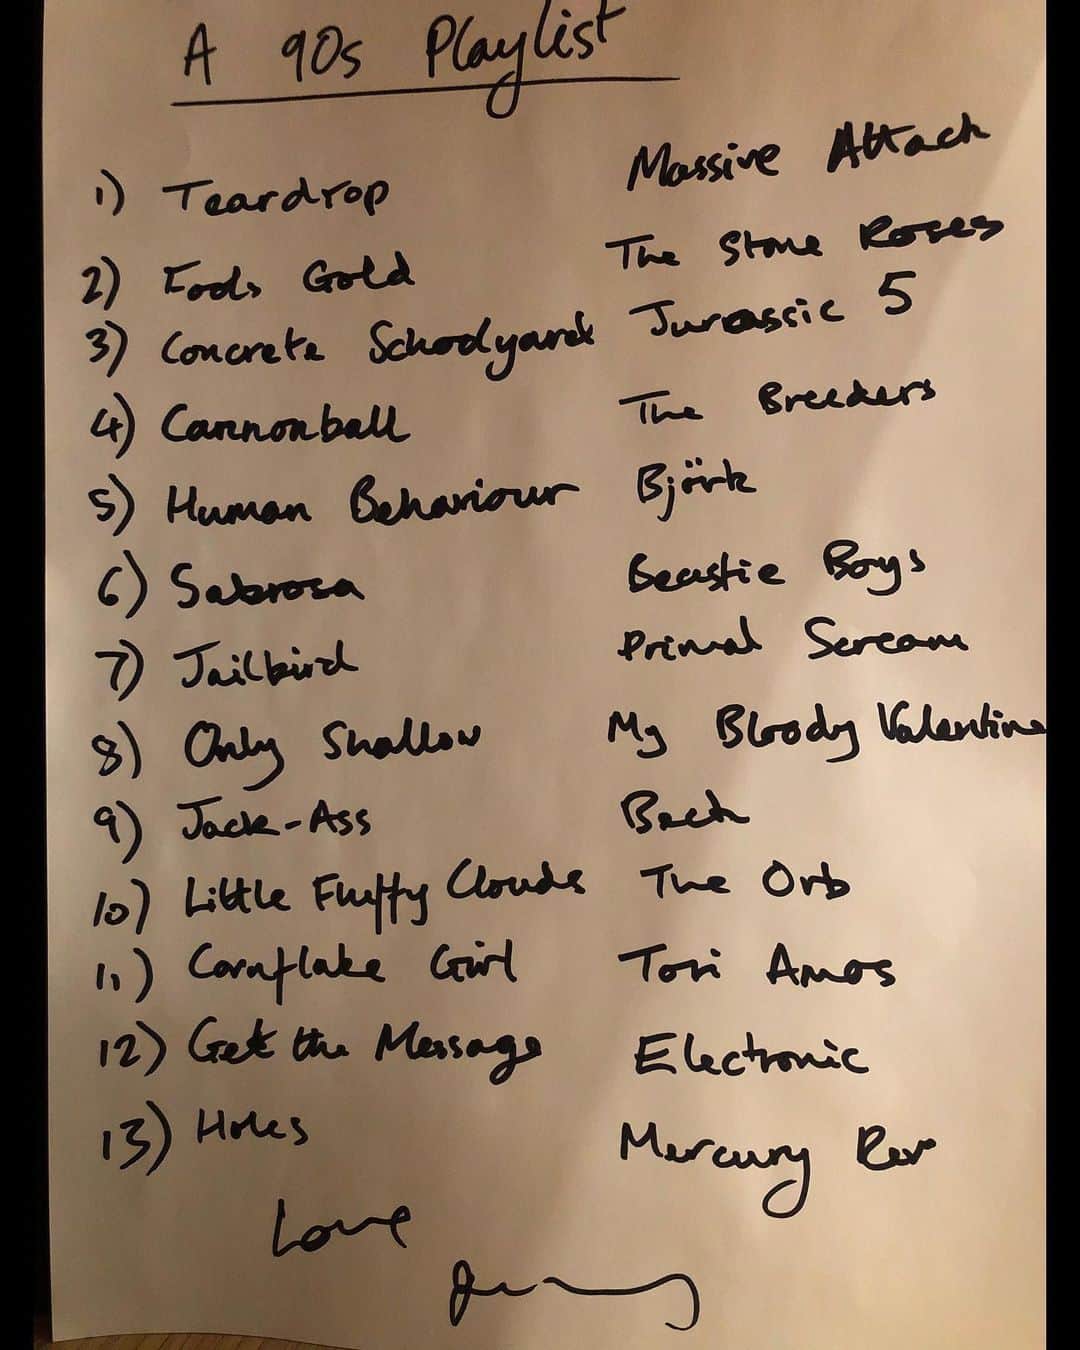 A 90s Playlist
1) Teardrop Massive Attack
2) Fools Gold The Stone Roses
3) Concrete Schoolyard Jurassic 5
4) Cannonball The Breeders
5) Human Behaviour Björk
6) Sabrosa Beastie Boys
7) Jailbird Primal Scream
8) Only Shallow My Bloody Valentine
9) Jack-Ass Beck
10) Little Fluffy Clouds The Orb
11) Cornflake Girl Tori Amos
12) Get the Message Electronic
13) Holes Mercury Rev
Love